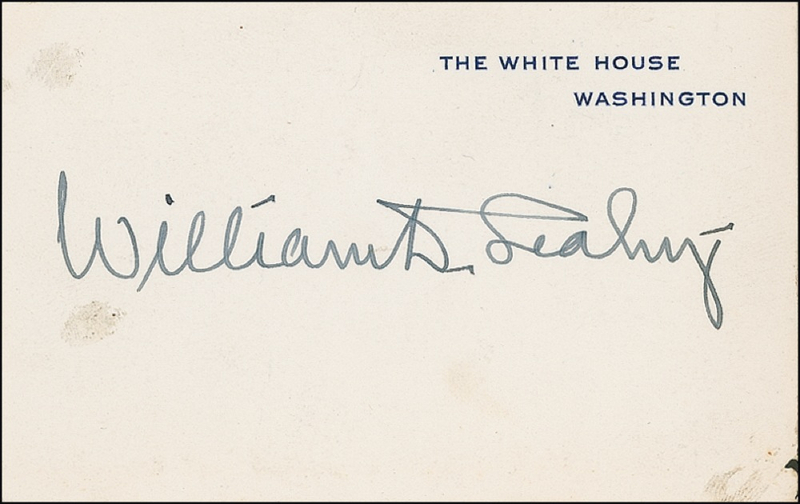 THE WHITE HOUSE
WASHINGTON
William D. Leahy